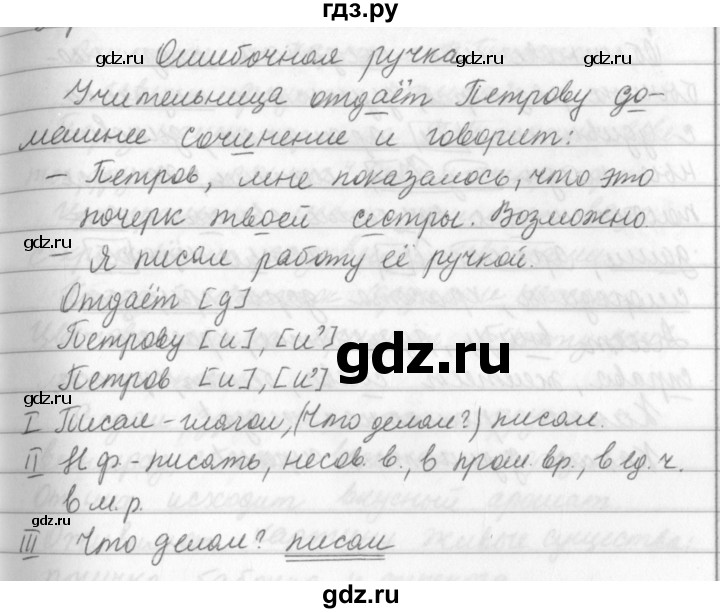 гдз.ру
Ошибочная ручка
Учительница отдаёт Петрову до-
машнее сочинение и говорит:
– Петров, мне показалось, что это
почерк твоей сестры. Возможно.
– Я писал работу её ручкой.
Отдаёт [д]
Петрову [и], [и³]
Петров [и], [и³]
I Писал - глагол, (Что делал?) писал.
II Н.ф. - писать, несов. в., в прош. вр., в ед. ч.
в м. р.
III Что делал? писал
gdz.ru
gdz.ru
gdz.ru
gdz.ru
gdz.ru
gdz.ru
gdz.ru
gdz.ru
gdz.ru
gdz.ru
gdz.ru